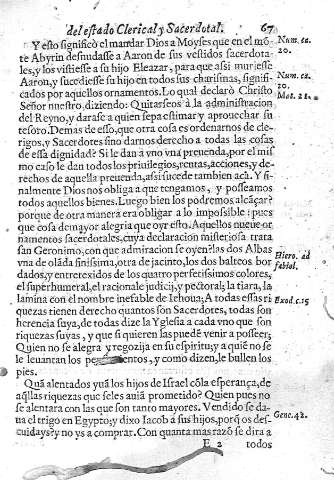 del estado Clerical y Sacerdotal. 67
Y esto significò el mandar Dios a Moyses que en el mõ-
te Abyrin desnudasse a Aaron de sus vestidos sacerdota-
les, y los vistiesse a su hijo Eleazar, para que assi muriesse
Aaron, y sucediesse su hijo en todos sus charismas, signifi-
cados por aquellos ornamentos. Lo qual declarò Christo
Señor nuestro, diziendo: Quitarseos à la administracion
del Reyno, y darase a quien sepa estimar y aprouechar su
tesoro. Demas de esso, que otra cosa es ordenarnos de cle-
rigos, y Sacerdotes sino darnos derecho a todas las cosas
de essa dignidad? Si le dan à vno vna preuenda, por el mis
mo caso le dan todos los priuilegios, rentas, acciones, y de-
rechos de aquella preuenda, assi sucede tambien acà. Y fi-
nalmente Dios nos obliga a que tengamos, y posseamos
todos aquellos bienes. Luego bien los podremos alcãçar?
porque de otra manera era obligar a lo impossible: pues
que cosa de mayor alegria que oyr esto. Aquellos nueue or
namentos sacerdotales, cuya declaracion misteriosa trata
san Geronimo, con que admiracion se oyen? las dos Albas
vna de olãda finissima, otra de jacinto, los dos balteos bor
dados, y entretexidos de los quatro perfetissimos colores,
el superhumeral, el racionale judicij, y pectoral; la tiara, la
lamina con el nombre inefable de Iehoua; A todas essas ri
quezas tienen derecho quantos son Sacerdotes, todas son
herencia suya, de todas dize la Yglesia a cada vno que son
riquezas suyas, y que si quieren las puedẽ venir a posseer;
Quien no se alegra y regozija en su espiritu; y a quiẽ no se
le leuantan los pensamientos, y como dizen, le bullen los
pies.
Quã alentados yuã los hijos de Israel cõla esperança, de
aq̃llas riquezas que seles auiã prometido? Quien pues no
se alentara con las que son tanto mayores. Vendido se da-
ua el trigo en Egypto; y dixo Iacob â sus hijos, porq̃ os des-
cuidays? no ys a comprar. Con quanta mas razõ se dira a
E 2 todos
Num. ca.
20.
Num. ca.
20.
Mat. 21.
Hiero. ad
fabiol.
Exod. c. 15
Gene. 42.